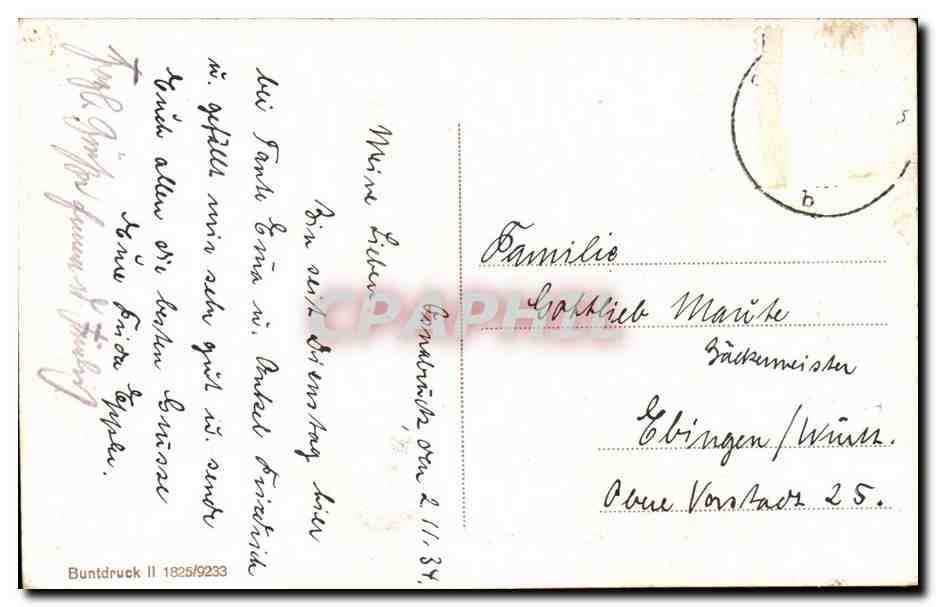 Osnabrück, den 2.11.34.
Meine Lieben
Bin seit Dienstag hier
bei Tante Ema u. Onkel Friedrich
u. gefällt mir sehr gut u. sende
Euch allen die besten Grüsse
Eure Frida Eppler.
Herzl. Grüsse
Familie
Gottlieb Maute
Bäckermeister
Ebingen/Württ.
Obere Vorstadt 25.
Buntdruck II 1825/9233
CPAPHIL
b